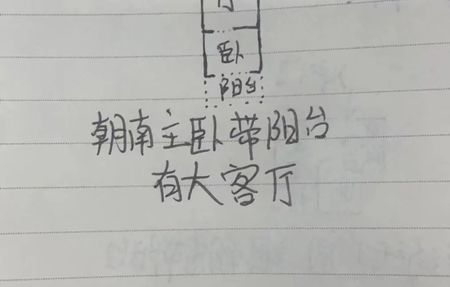 厅
卧
阳台
朝南主卧带阳台
有大客厅